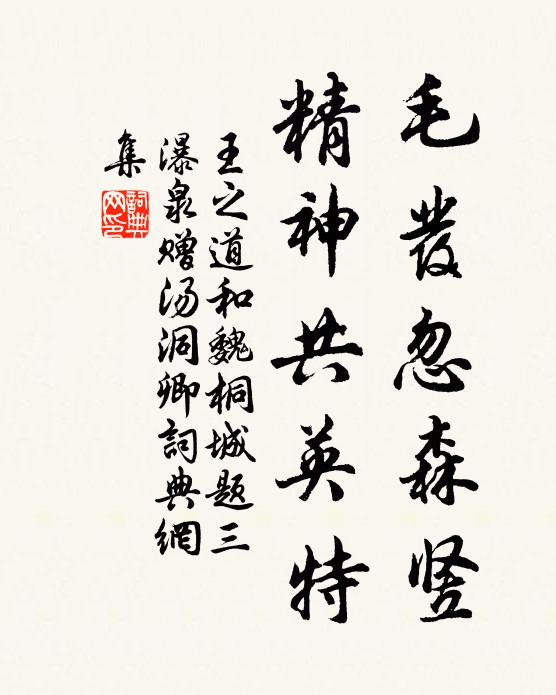 毛發忽森竖
精神共英特
王之道和魏桐城题三
瀑泉赠汤洞卿詞典網
集
詞典网印